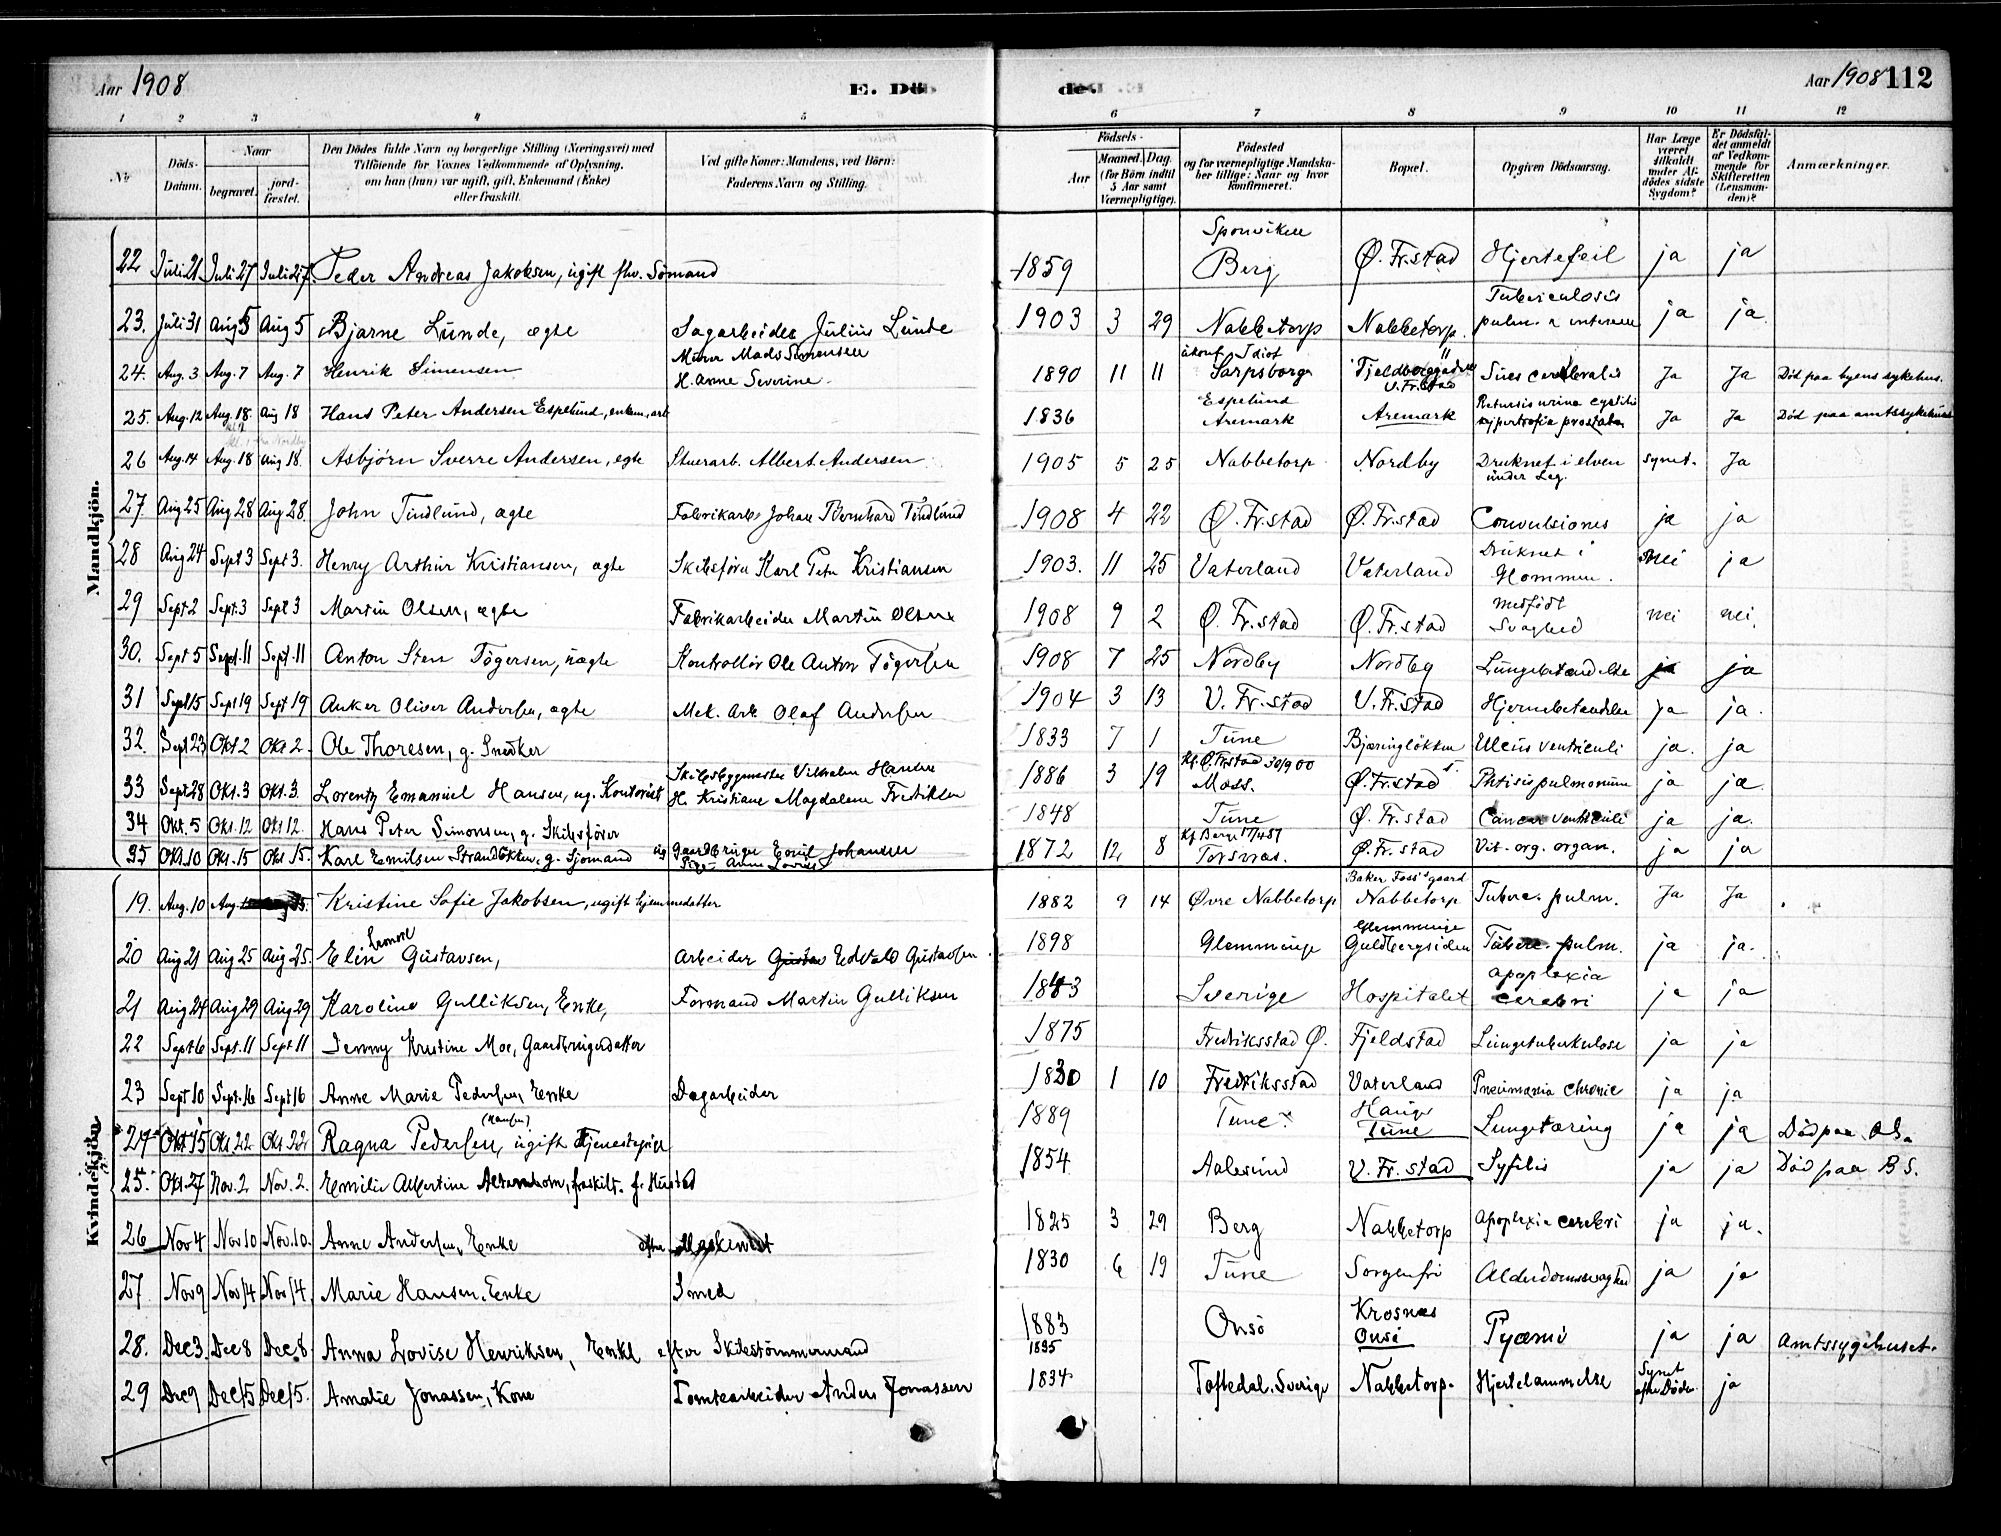 Aar 1908 E. Döde. Aar 1908 112
1 2 3 4 5 6 7 8 9 10 11 12
No Döds-Datum. Naar begravet. jordfæstet. Den Dödes fulde Navn og borgerlige Stilling (Næringsvei) med Tilföiende for Voxnes Vedkommende af Oplysning, om han (hun) var ugift, gift, Enkemand (Enke) eller fraskilt. Ved gifte Koner: Mandens, ved Börn: Faderens Navn og Stilling. Födsels- Aar Maaned. Dag. (for Börn indtil 5 Aar samt Værnepligtige). Födested og for værnepligtige Mandskaber tillige: Naar og hvor konfirmeret. Bopæl. Opgiven Dödsaarsag. Har Læge været tilkaldt under Afdödes sidste Sygdom? Er Dödsfaldet anmeldt af Vedkommende for Skifteretten (Lensmanden)? Anmærkninger.
Mandkjön.
22 Juli 21 Juli 27 Juli 27. Peder Andreas Jakobsen, ugift fhv. Sömand 1859 Sponviken Berg Ø. Fr.stad Hjertefeil ja ja
23. Juli 31 Aug 5 Aug 5 Bjarne Lunde, ægte Sagarbeider Julius Lunde 1903 3 29 Nabbetorp Nabbetorp. Tuberculosis pulm. ja ja.
24. Aug. 3 Aug. 7 Aug. 7 Henrik Simensen Murer Mads Simensen H. Anne Severine. 1890 11 11 ukonf. Idiot Sarpsborg V. Fr.stad cerebralis Ja Ja Död paa byens sykehus.
25. Aug. 12 Aug. 18 Aug 18 Hans Peter Andersen Espelund, enkem, arb 1836 Espelund Aremark Aremark urina cystitis prostata Ja Ja Död paa amtssykehuset
26 Aug. 14 Aug. 18 Aug 18. Asbjörn Sverre Andersen, egte Stuerarb. Albert Andersen 1905 5 25 Nabbetorp Nordby Druknet i elven under Leg. synet. Ja
27. Aug 25 Aug 28 Aug 28. John Tindlund, ægte Fabrikarb. Johan Bernhard Tindlund 1908 4 22 Ø. Fr.stad Ø. Fr.stad Convulsiones ja ja
28 Aug 24 Sept 3 Sept 3. Henry Arthur Kristiansen, ægte Skibsförer Karl Peter Kristiansen 1903. 11 25 Vaterland Vaterland Druknet i Glommen. nei ja
29 Sept 2 Sept. 3 Sept 3 Martin Olsen, ægte Fabrikarbeider Martin Olsen 1908 9 2 Ø. Fr.stad Ø. Fr.stad medfödt Svaghed nei nei.
30. Sept 5 Sept. 11 Sept. 11 Anton Sten Tögersen, uægte Kontrollör Ole Anton Tögersen 1908 7 25 Nordby Nordby Lungebetændelse ja ja
31 Sept 15 Sept 19 Sept 19 Anker Oliver Andersen, ægte Mek. Arb Olaf Andersen 1904 3 13 V. Fr.stad V. Fr.stad Hjernebetændelse ja ja.
32. Sept 23 Okt 2 Okt 2. Ole Thoresen, g. Snedker 1833 7 1 Tune Bjæringlökken Ulcus ventriculi ja. ja
33 Sept 28 Okt. 3 Okt. 3. Lorentz Emanuel Hansen, ug. Kontorist Skibsbyggmester Vilhelm Hansen H. Kristiane Magdalene Fredriksen 1886 3 19 Kf. Ø. Frstad 30/9 00 Moss. Ø. Fr.stad Phtisis pulmonum ja ja.
34 Okt. 5 Okt. 12 Okt 12. Hans Peter Simonsen, g. Skibsförer 1848 Tune Ø. Fr.stad Cancer ventriculi ja ja.
35 Okt. 10 Okt. 15 Okt 15. Karl Emilsen Strandbakken, g. Sjömand Gaardbruger Emil Johansen 1872 12 8 Torsnæs. Ø. Fr.stad Vit. org. organ. ja ja
Kvindekjön.
19. Aug. 10 Aug 15. Kristine Sofie Jakobsen, ugift hjemmedatter 1882 9 14 Øvre Nabbetorp Baker Foss's gaard Nabbetorp Tuberc. pulm. Ja Ja
20 Aug 21 Aug 25 Aug 25. Elin Leonora Gustavsen, Arbeider Edvald Gustavsen 1898 Glemminge Glemminge Guldbergsiden Tuberc. pulm. ja ja.
21 Aug 24 Aug 29 Aug 29 Karoline Gulliksen, Enke, Formand Martin Gulliksen 1843 Sverige Hospitalet apoplexia cerebri ja ja
22 Sept 6 Sept. 11 Sept 11 Jenny Kristine Moe, Gaardbrugerdatter 1875 Fredriksstad Ø. Fjeldstad Lungetuberkulose ja ja
23 Sept 10 Sept. 16 Sept 16 Anne Marie Pedersen, Enke Dagarbeider 1830 1 10 Fredriksstad Vaterland Pneumonia chronic ja ja
24 Okt 15 Okt. 22 Okt. 22 Ragna Pedersen, (Hansen) ugift Tjenestepige 1889 Tune Hauge Tune Lungetæring ja ja Död paa A S.
25. Okt. 27 Nov. 2 Nov. 2. Emilie Albertine fraskilt. f. Hustad 1854 Aalesund V. Fr. stad Syfilis ja ja Död paa B S.
26 Nov 4 Nov 10 Nov. 10. Anne Andersen, Enke efter Maskinist 1825 3 29 Berg Nabbetorp Apoplexia cerebri ja ja.
27. Nov 9 Nov 14 Nov 14. Marie Hansen. Enke Smed 1830 6 19 Tune Sorgenfri Alderdomssvaghed ja ja
28. Dec 3. Dec 8 Dec. 8. Anna Lovise Henriksen, Enke efter Skibstömmermand 1883 1835 Onsö Krosnes Onsö Pyæmi ja ja Amtssygehuset.
29 Dec 9 Dec 15 Dec 15. Amalie Jonassen, Kone Tomtearbeider Anders Jonassen 1834 Toftedal. Sverige Nabbetorp. Hjertelammelse Synet efter Döden ja